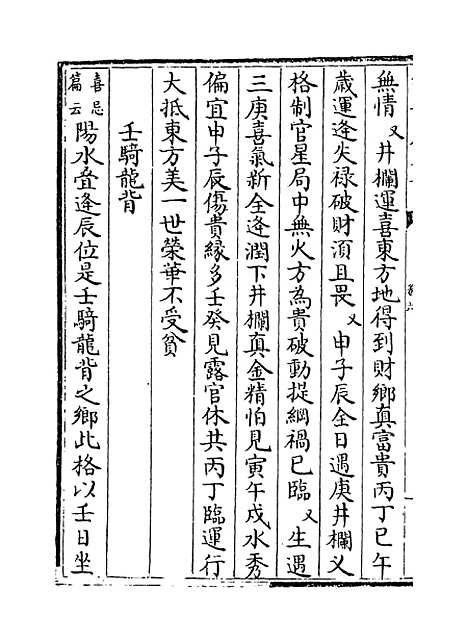 無情又井欄運喜東方地得到財鄉真富貴丙丁巳午
歲運逢失禄破財湏且畏又申子辰全日遇庚井欄乂
格制官星局中無火方為貴破動提綱禍已臨又生遇
三庚喜氣新全逢潤下井欄真金精怕見寅午戌水秀
偏宜申子辰傷貴緣多壬癸見露官休共丙丁臨運行
大抵東方美一世榮華不受貧
壬騎龍背
喜忌篇云陽水叠逢辰位是壬騎龍背之鄉此格以壬日坐